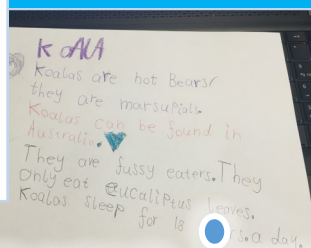 KOALA
Koalas are not Bears
they are marsupials.
Koalas can be found in
Australia.
They are fussy eaters. They
only eat eucaliptus leaves.
Koalas sleep for 18 rs. a day.